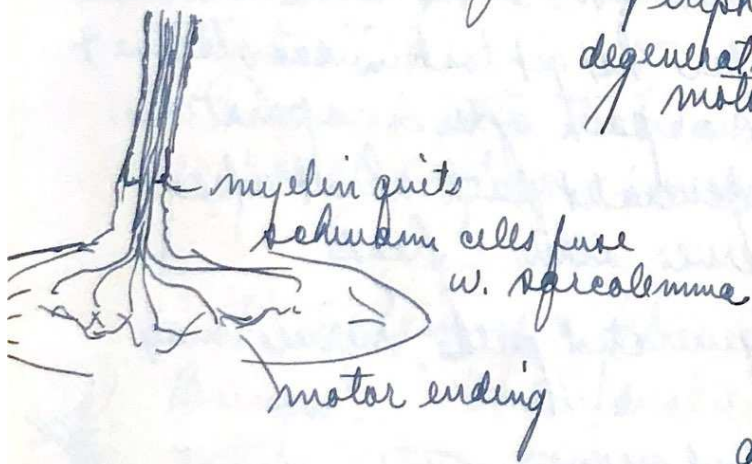 degenerat
mot
myelin quits
schwann cells fuse
w. sarcolemma
motor ending